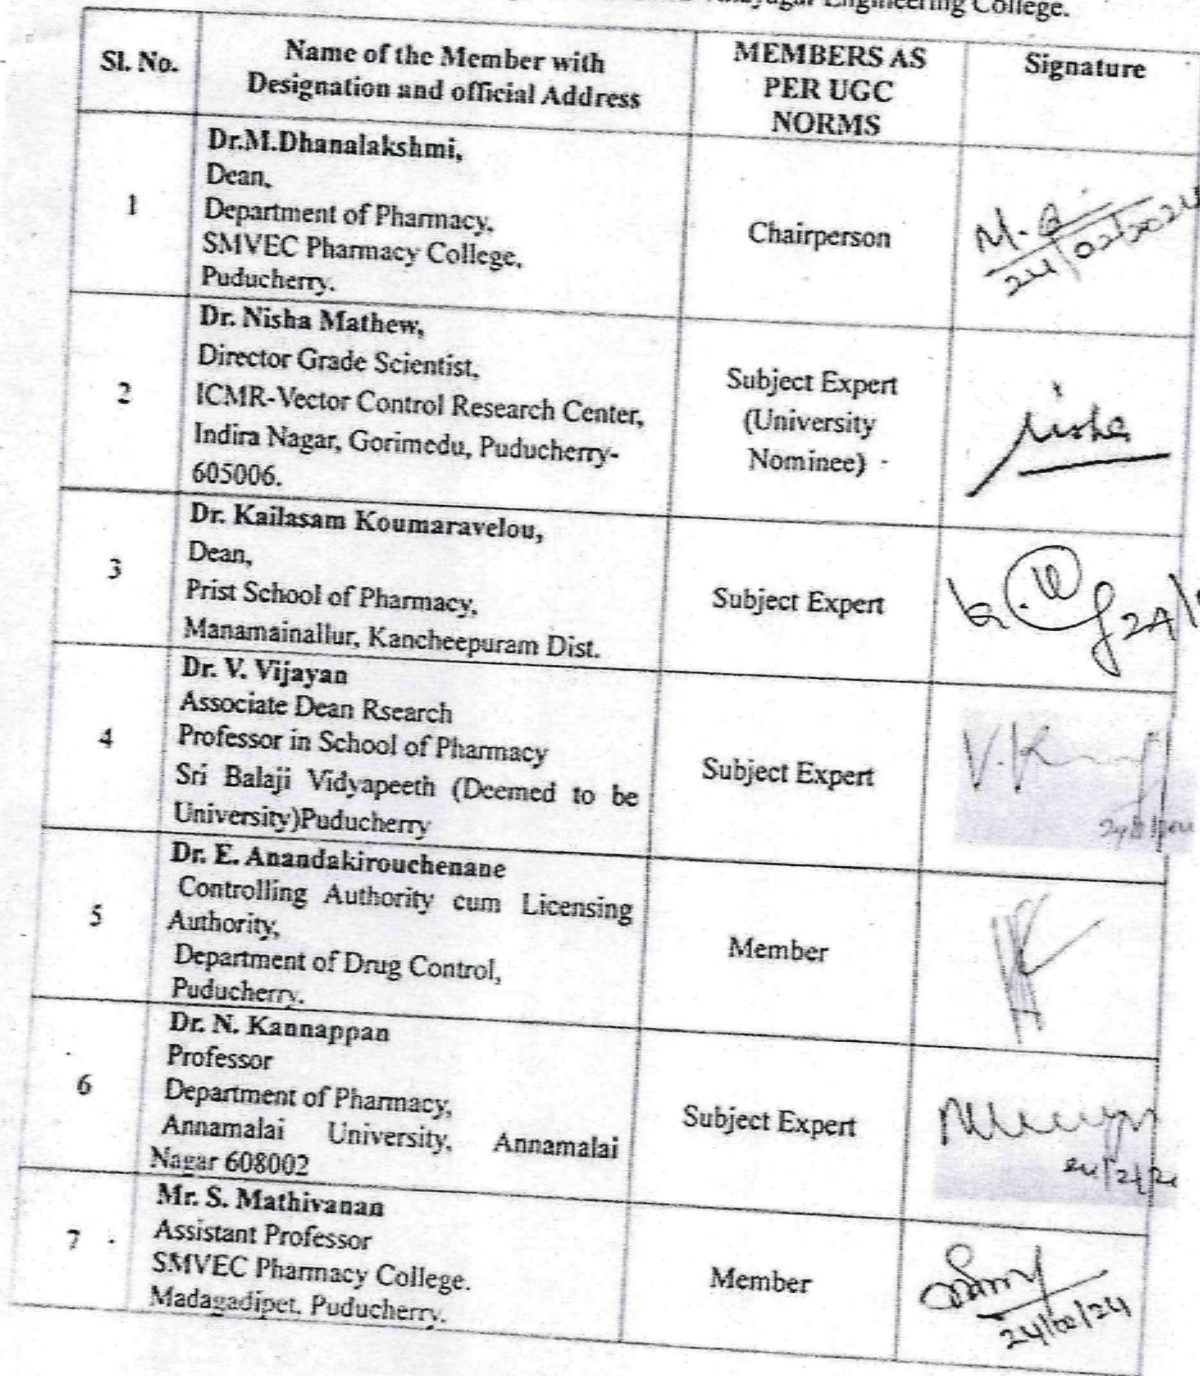 Engineering College.
Sl. No.
Name of the Member with
Designation and official Address
MEMBERS AS
PER UGC
NORMS
Signature
1
Dr.M.Dhanalakshmi,
Dean,
Department of Pharmacy,
SMVEC Pharmacy College,
Puducherry.
Chairperson
24/02/2024
2
Dr. Nisha Mathew,
Director Grade Scientist,
ICMR-Vector Control Research Center,
Indira Nagar, Gorimedu, Puducherry-
605006.
Subject Expert
(University
Nominee)
Nisha
3
Dr. Kailasam Koumaravelou,
Dean,
Prist School of Pharmacy,
Manamainallur, Kancheepuram Dist.
Subject Expert
4
Dr. V. Vijayan
Associate Dean Rsearch
Professor in School of Pharmacy
Sri Balaji Vidyapeeth (Deemed to be
University)Puducherry
Subject Expert
5
Dr. E. Anandakirouchenane
Controlling Authority cum Licensing
Authority,
Department of Drug Control,
Puducherry.
Member
6
Dr. N. Kannappan
Professor
Department of Pharmacy,
Annamalai University, Annamalai
Nagar 608002
Subject Expert
7
Mr. S. Mathivanan
Assistant Professor
SMVEC Pharmacy College.
Madagadipet, Puducherry.
Member
24/02/24